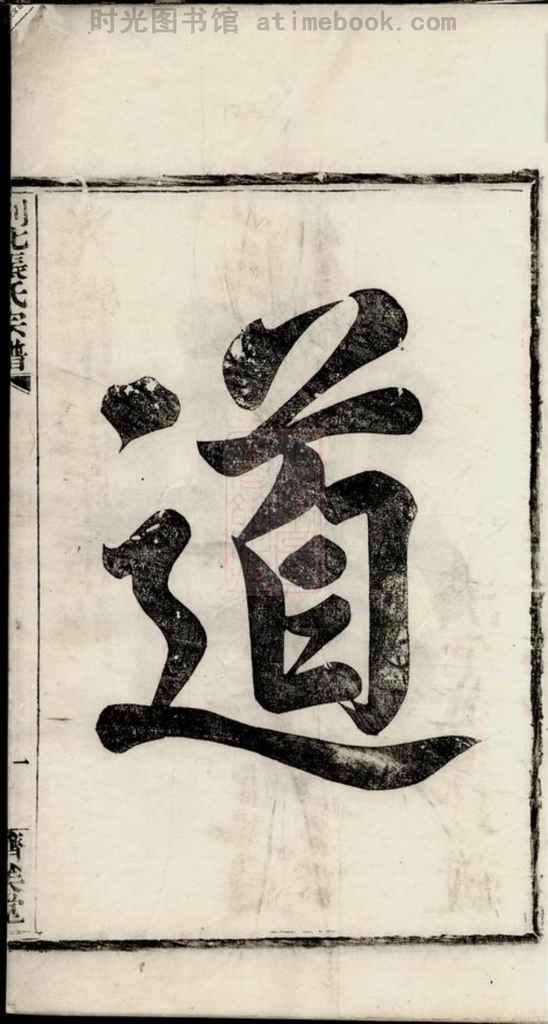 时光图书馆 atimebook.com
道
氏宗譜
1